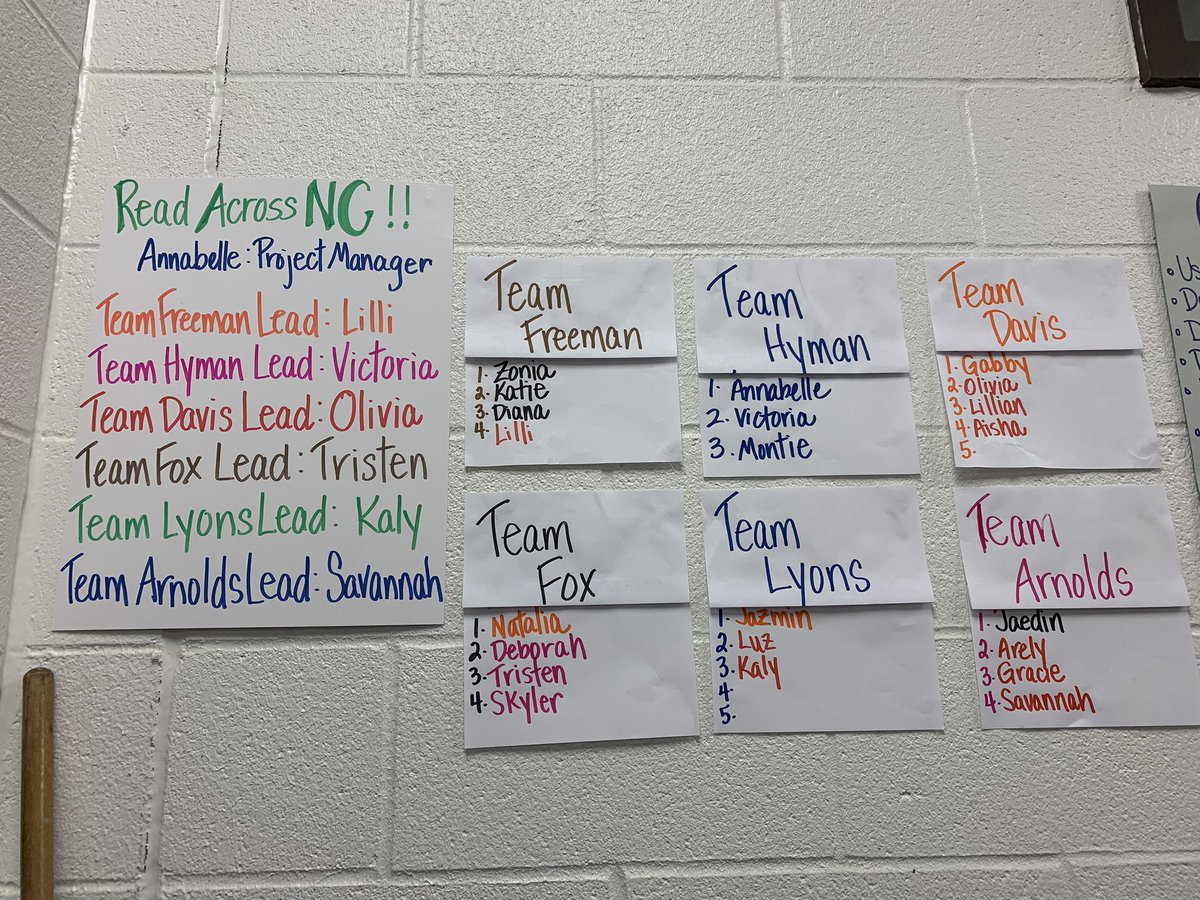 Read Across NC!!
Annabelle: Project Manager
Team Freeman Lead: Lilli
Team Hyman Lead: Victoria
Team Davis Lead: Olivia
Team Fox Lead: Tristen
Team Lyons Lead: Kaly
Team Arnolds Lead: Savannah
Team
Freeman
1. Zonia
2. Katie
3. Diana
4. Lilli
Team
Hyman
1. Annabelle
2. Victoria
3. Montie
Team
Davis
1. Gabby
2. Olivia
3. Lillian
4. Aisha
5.
Team
Fox
1. Natalia
2. Deborah
3. Tristen
4. Skyler
Team
Lyons
1. Jazmin
2. Luz
3. Kaly
4.
5.
Team
Arnolds
1. Jaedin
2. Arely
3. Gracie
4. Savannah